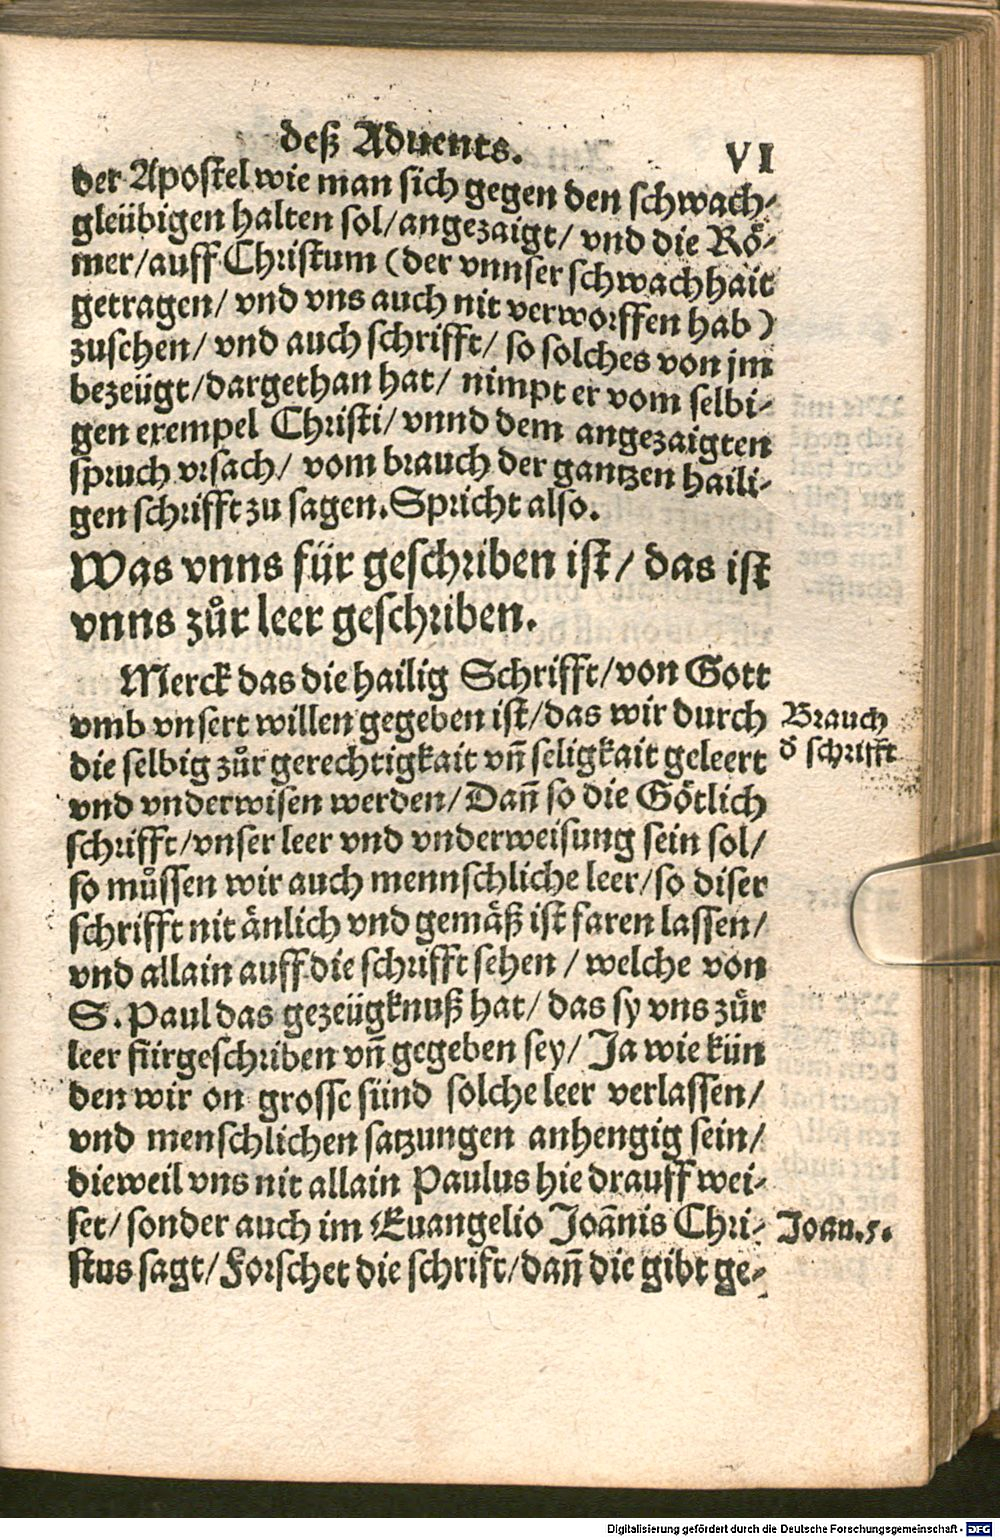 deß Aduents.
VI
der Apostel wie man sich gegen den schwach-
gleübigen halten sol/ angezaigt/ vnd die Rö-
mer/ auff Christum (der vnnser schwachhait
getragen/ vnd vns auch nit verworffen hab)
zusehen/ vnd auch schrifft/ so solches von jm
bezeügt/ dargethan hat/ nimpt er vom selbi-
gen exempel Christi/ vnnd dem angezaigten
spruch vrsach/ vom brauch der gantzen haili-
gen schrifft zu sagen. Spricht also.
Was vnns für geschriben ist/ das ist
vnns zůr leer geschriben.
Merck das die hailig Schrifft/ von Gott
vmb vnsert willen gegeben ist/ das wir durch
die selbig zůr gerechtigkait vñ seligkait geleert
vnd vnderwisen werden/ Dañ so die Götlich
schrifft/ vnser leer vnd vnderweisung sein sol/
so můssen wir auch mennschliche leer/ so diser
schrifft nit änlich vnd gemäß ist faren lassen/
vnd allain auff die schrifft sehen/ welche von
S. Paul das gezeügknuß hat/ das sy vns zůr
leer fürgeschriben vñ gegeben sey/ Ja wie kün
den wir on grosse sünd solche leer verlassen/
vnd menschlichen satzungen anhengig sein/
dieweil vns nit allain Paulus hie drauff wei-
set/ sonder auch im Euangelio Joãnis Chri-
stus sagt/ Forschet die schrift/ dañ die gibt ge-
Brauch
d̄ schrifft
Joan. 5.
Digitalisierung gefördert durch die Deutsche Forschungsgemeinschaft - DFG